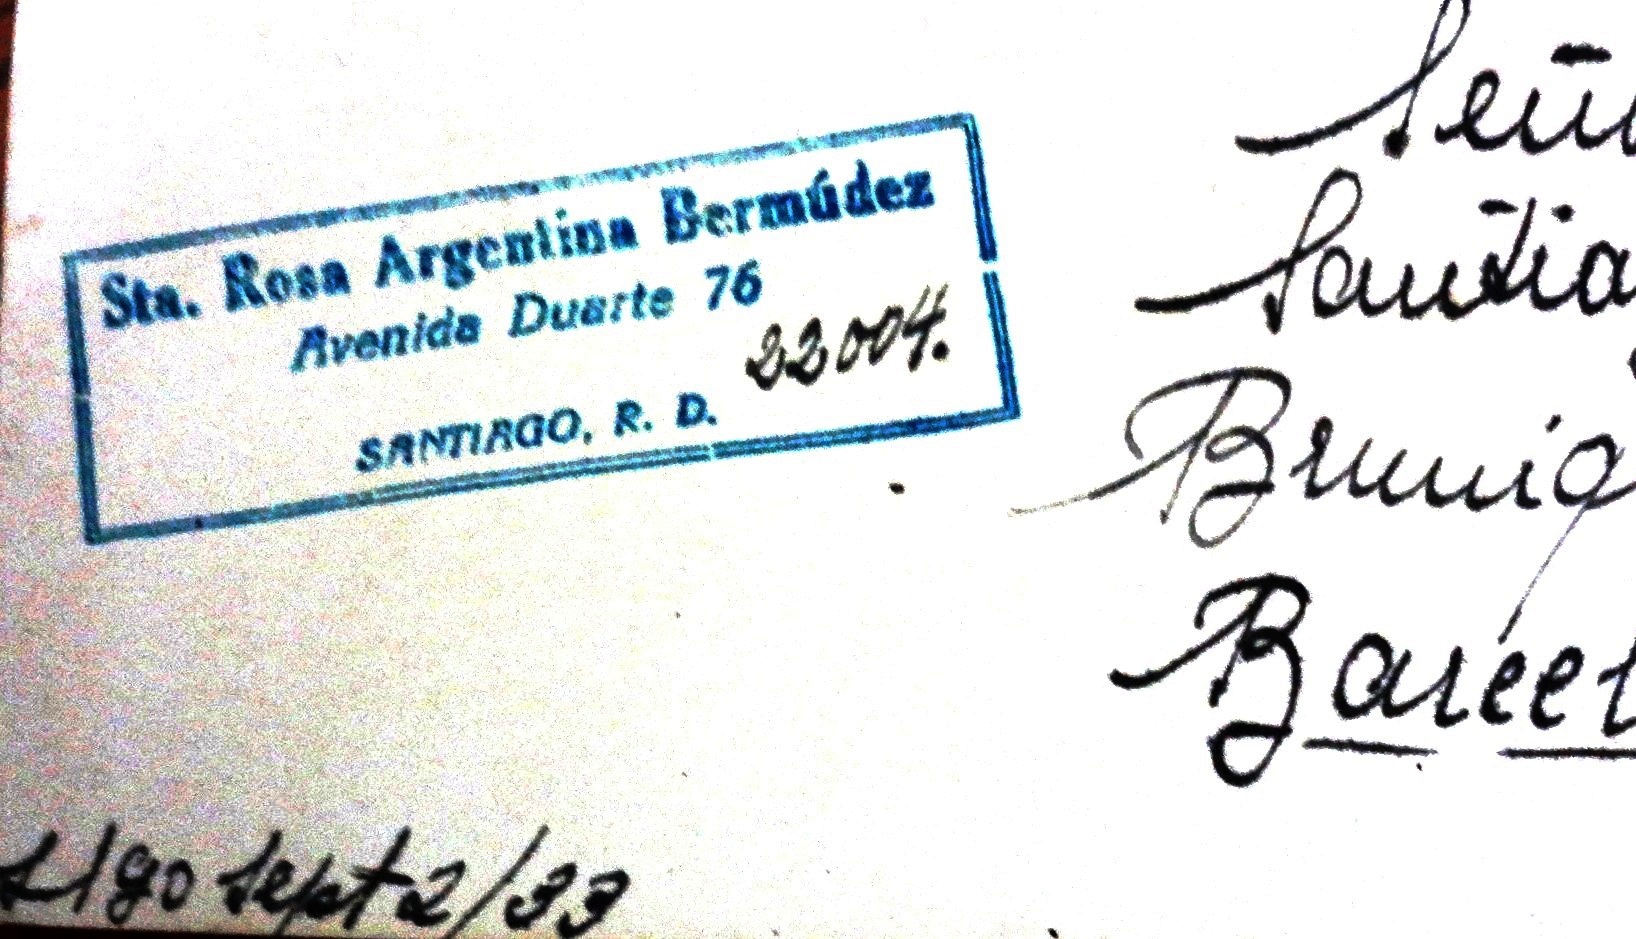 Sta. Rosa Argentina Bermúdez
Avenida Duarte 76
22004.
SANTIAGO, R. D.
Señ
Santia
Bruniq
Barcel
S/go Sept 2/33